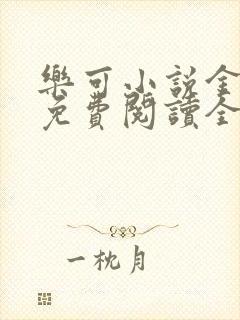 樂可小說全
免費閱讀全
一枕月